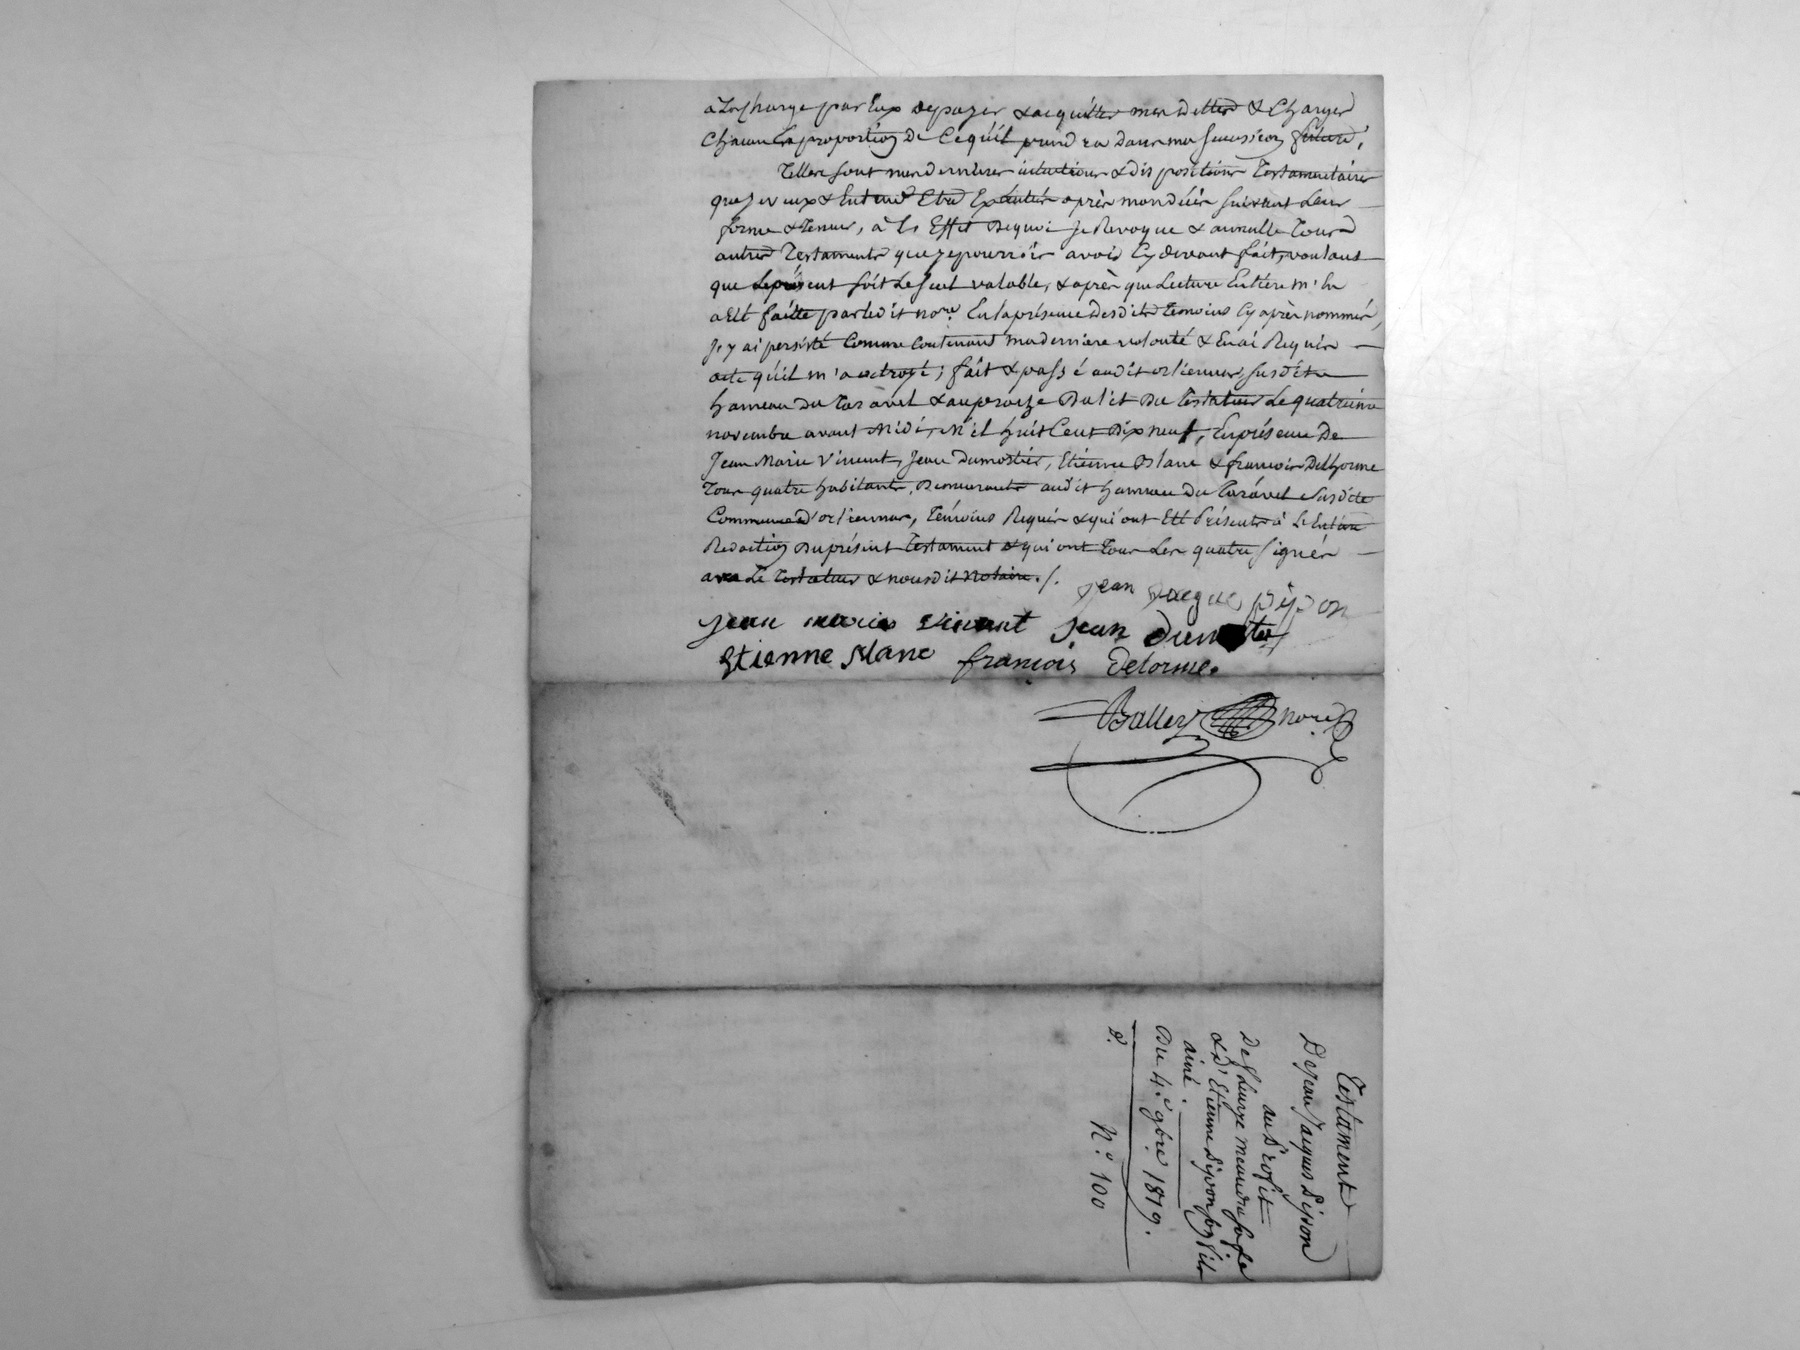 à la Charge par Eux depayer & acquitter mes dettes & Charges
Chacun En proportion de Ce qu'il prendra dans ma Succession future;
Telles sont mes dernieres intentions & dispositions Testamentaires
que je veux & Entend Etre Exécutés après mon décès suivant Leur
forme & teneur, à L'Effet dequoi Je Revoque & annulle Tous
autres Testaments que je pourrois avoir Cy devant fait, voulant
que Le présent soit Le seul valable, & après que Lecture Entiere m'En
a Eté faitte par ledit nore. En la présence desdits Temoins Cy après nommés,
J'y ai persisté Comme Contenant ma derniere volonté & En ai Requis
acte qu'il m'a octroyé; fait & passé audit orliennas, susdit
hameau du Taravel & auprès du lit du Testateur Le quatrieme
novembre avant Midi, Mil huit Cent Dix neuf, En présence de
Jean Marie Vincent, Jean Dumortier, Etienne Blanc & francois Delhorme
Tous quatre habitants, Demeurants audit hameau du Taravel susdite
Commune d'orliennas, Témoins Requis & qui ont Eté Présents à L'Entiere
Redaction du présent Testament & qui ont Tous Les quatre signés
avec Le Testateur & nousdit Notaire./.
jean jacque pipon
jean marie vincent jean dumortier
Etienne blanc francois Delorme.
Balley nore
Testament
De Jean Jacques Pipon
au Profit
& D'Etienne Pipon son fils
ainé.
Du 4.e 9bre 1819.
N.o 100